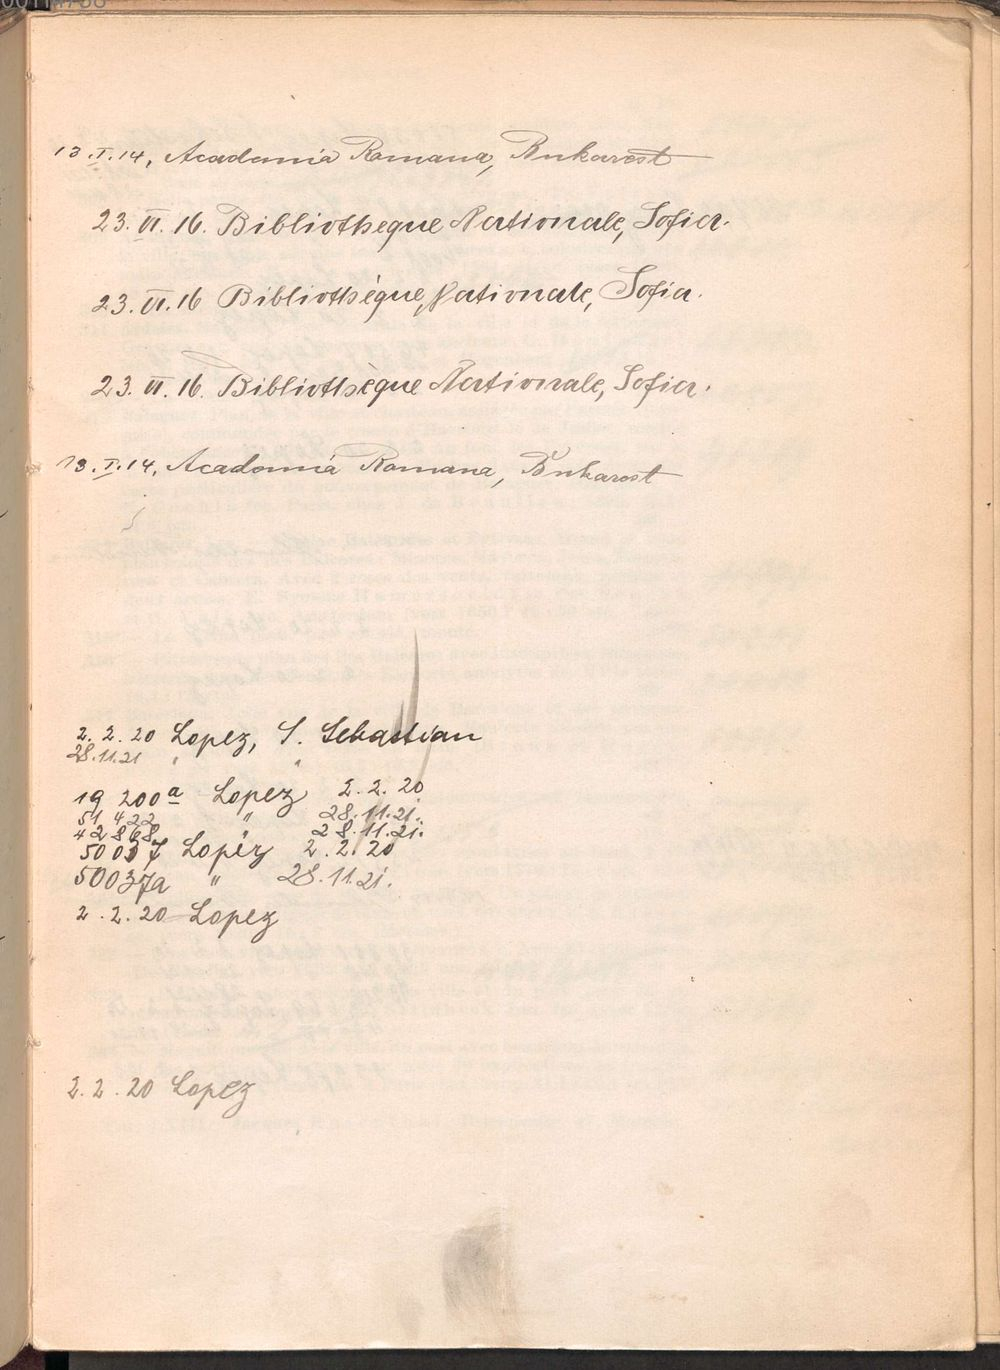 13.I.14, Academia Romana, Bukarest
23. VI. 16. Bibliotheque Nationale, Sofia.
23. VI. 16 Bibliothèque, Nationale, Sofia.
23. VI. 16. Bibliothèque Nationale, Sofia.
13.I.14, Academia Romana, Bukarest
2. 2. 20 Lopez, S. Sebastian
28.11.21 " "
19 200a Lopez 2. 2. 20
51 422 " 28.11.21.
42868 28.11.21.
50037 Lopez 2. 2. 20
50037a " 28.11.21.
2. 2. 20 Lopez
2. 2. 20 Lopez